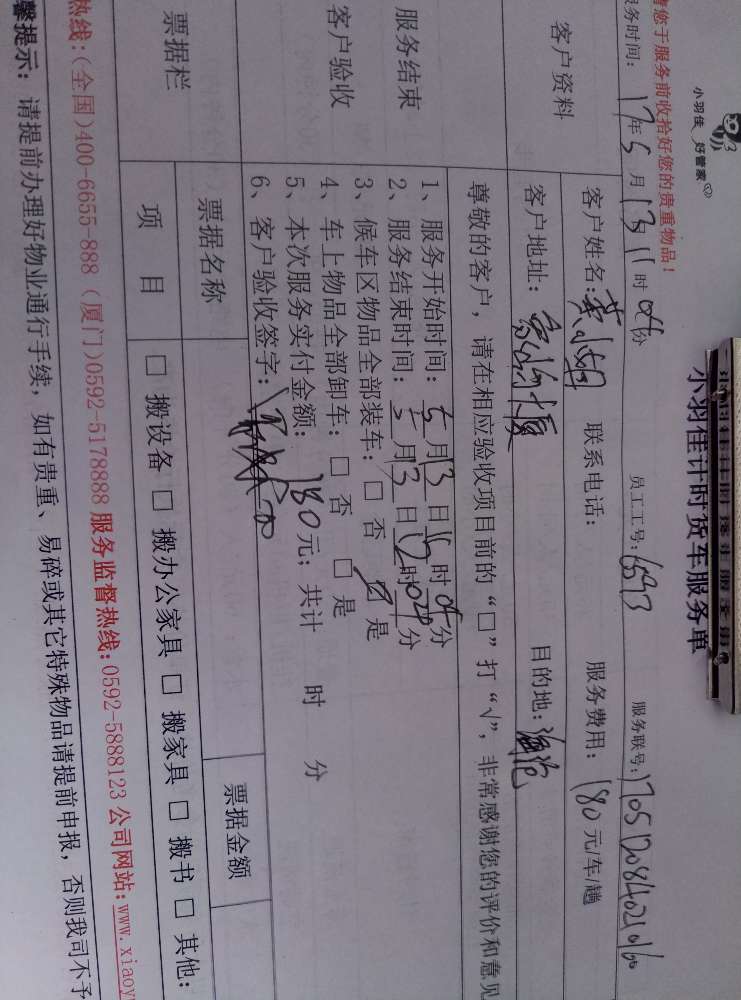 小羽佳 好管家
小羽佳计时货车服务单
请您于服务前收拾好您的贵重物品！
服务时间：17年5月13日11时04分 员工工号：6593 服务联号：
客户资料
客户姓名： 联系电话： 服务费用：180元/车/趟
客户地址： 目的地：海沧
尊敬的客户，请在相应验收项目前的“□”打“√”，非常感谢您的评价和意见
服务结束
客户验收
1、服务开始时间：5月13日11时04分
2、服务结束时间：5月13日12时02分
3、候车区物品全部装车：□ 否 ☑ 是
4、车上物品全部卸车：□ 否 □ 是
5、本次服务实付金额：180元；共计 时 分
6、客户验收签字：
票据栏
票据名称 票据金额
项 目 □ 搬设备 □ 搬办公家具 □ 搬家具 □ 搬书 □ 其他：
热线：(全国)400-6655-888 (厦门)0592-5178888 服务监督热线：0592-5888123 公司网站：www.xiaoy
馨提示：请提前办理好物业通行手续，如有贵重、易碎或其它特殊物品请提前申报，否则我司不予